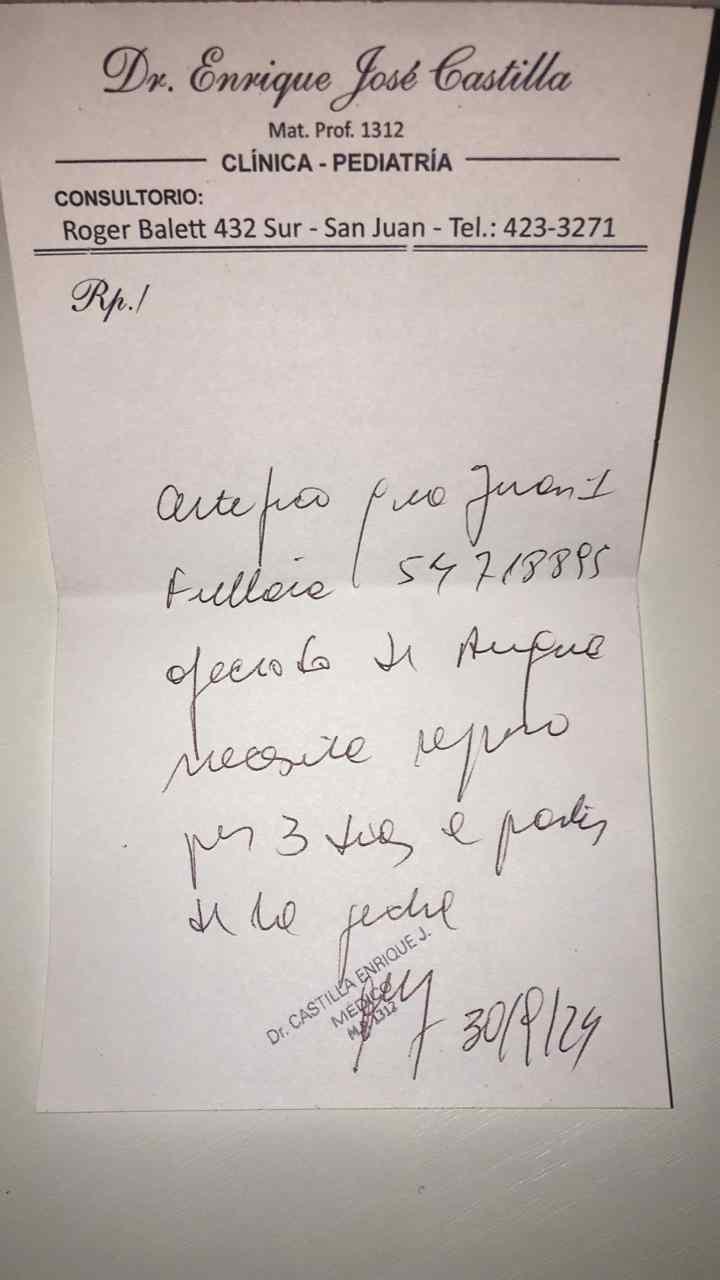 Dr. Enrique José Castilla
Mat. Prof. 1312
CLÍNICA - PEDIATRÍA
CONSULTORIO:
Roger Balett 432 Sur - San Juan - Tel.: 423-3271
Rp./
Certifico que Juan I
54718895
afectado de Angina
necesita reposo
por 3 dias a partir
de la fecha
Dr. CASTILLA ENRIQUE J.
MEDICO
M.P. 1312
30/9/24